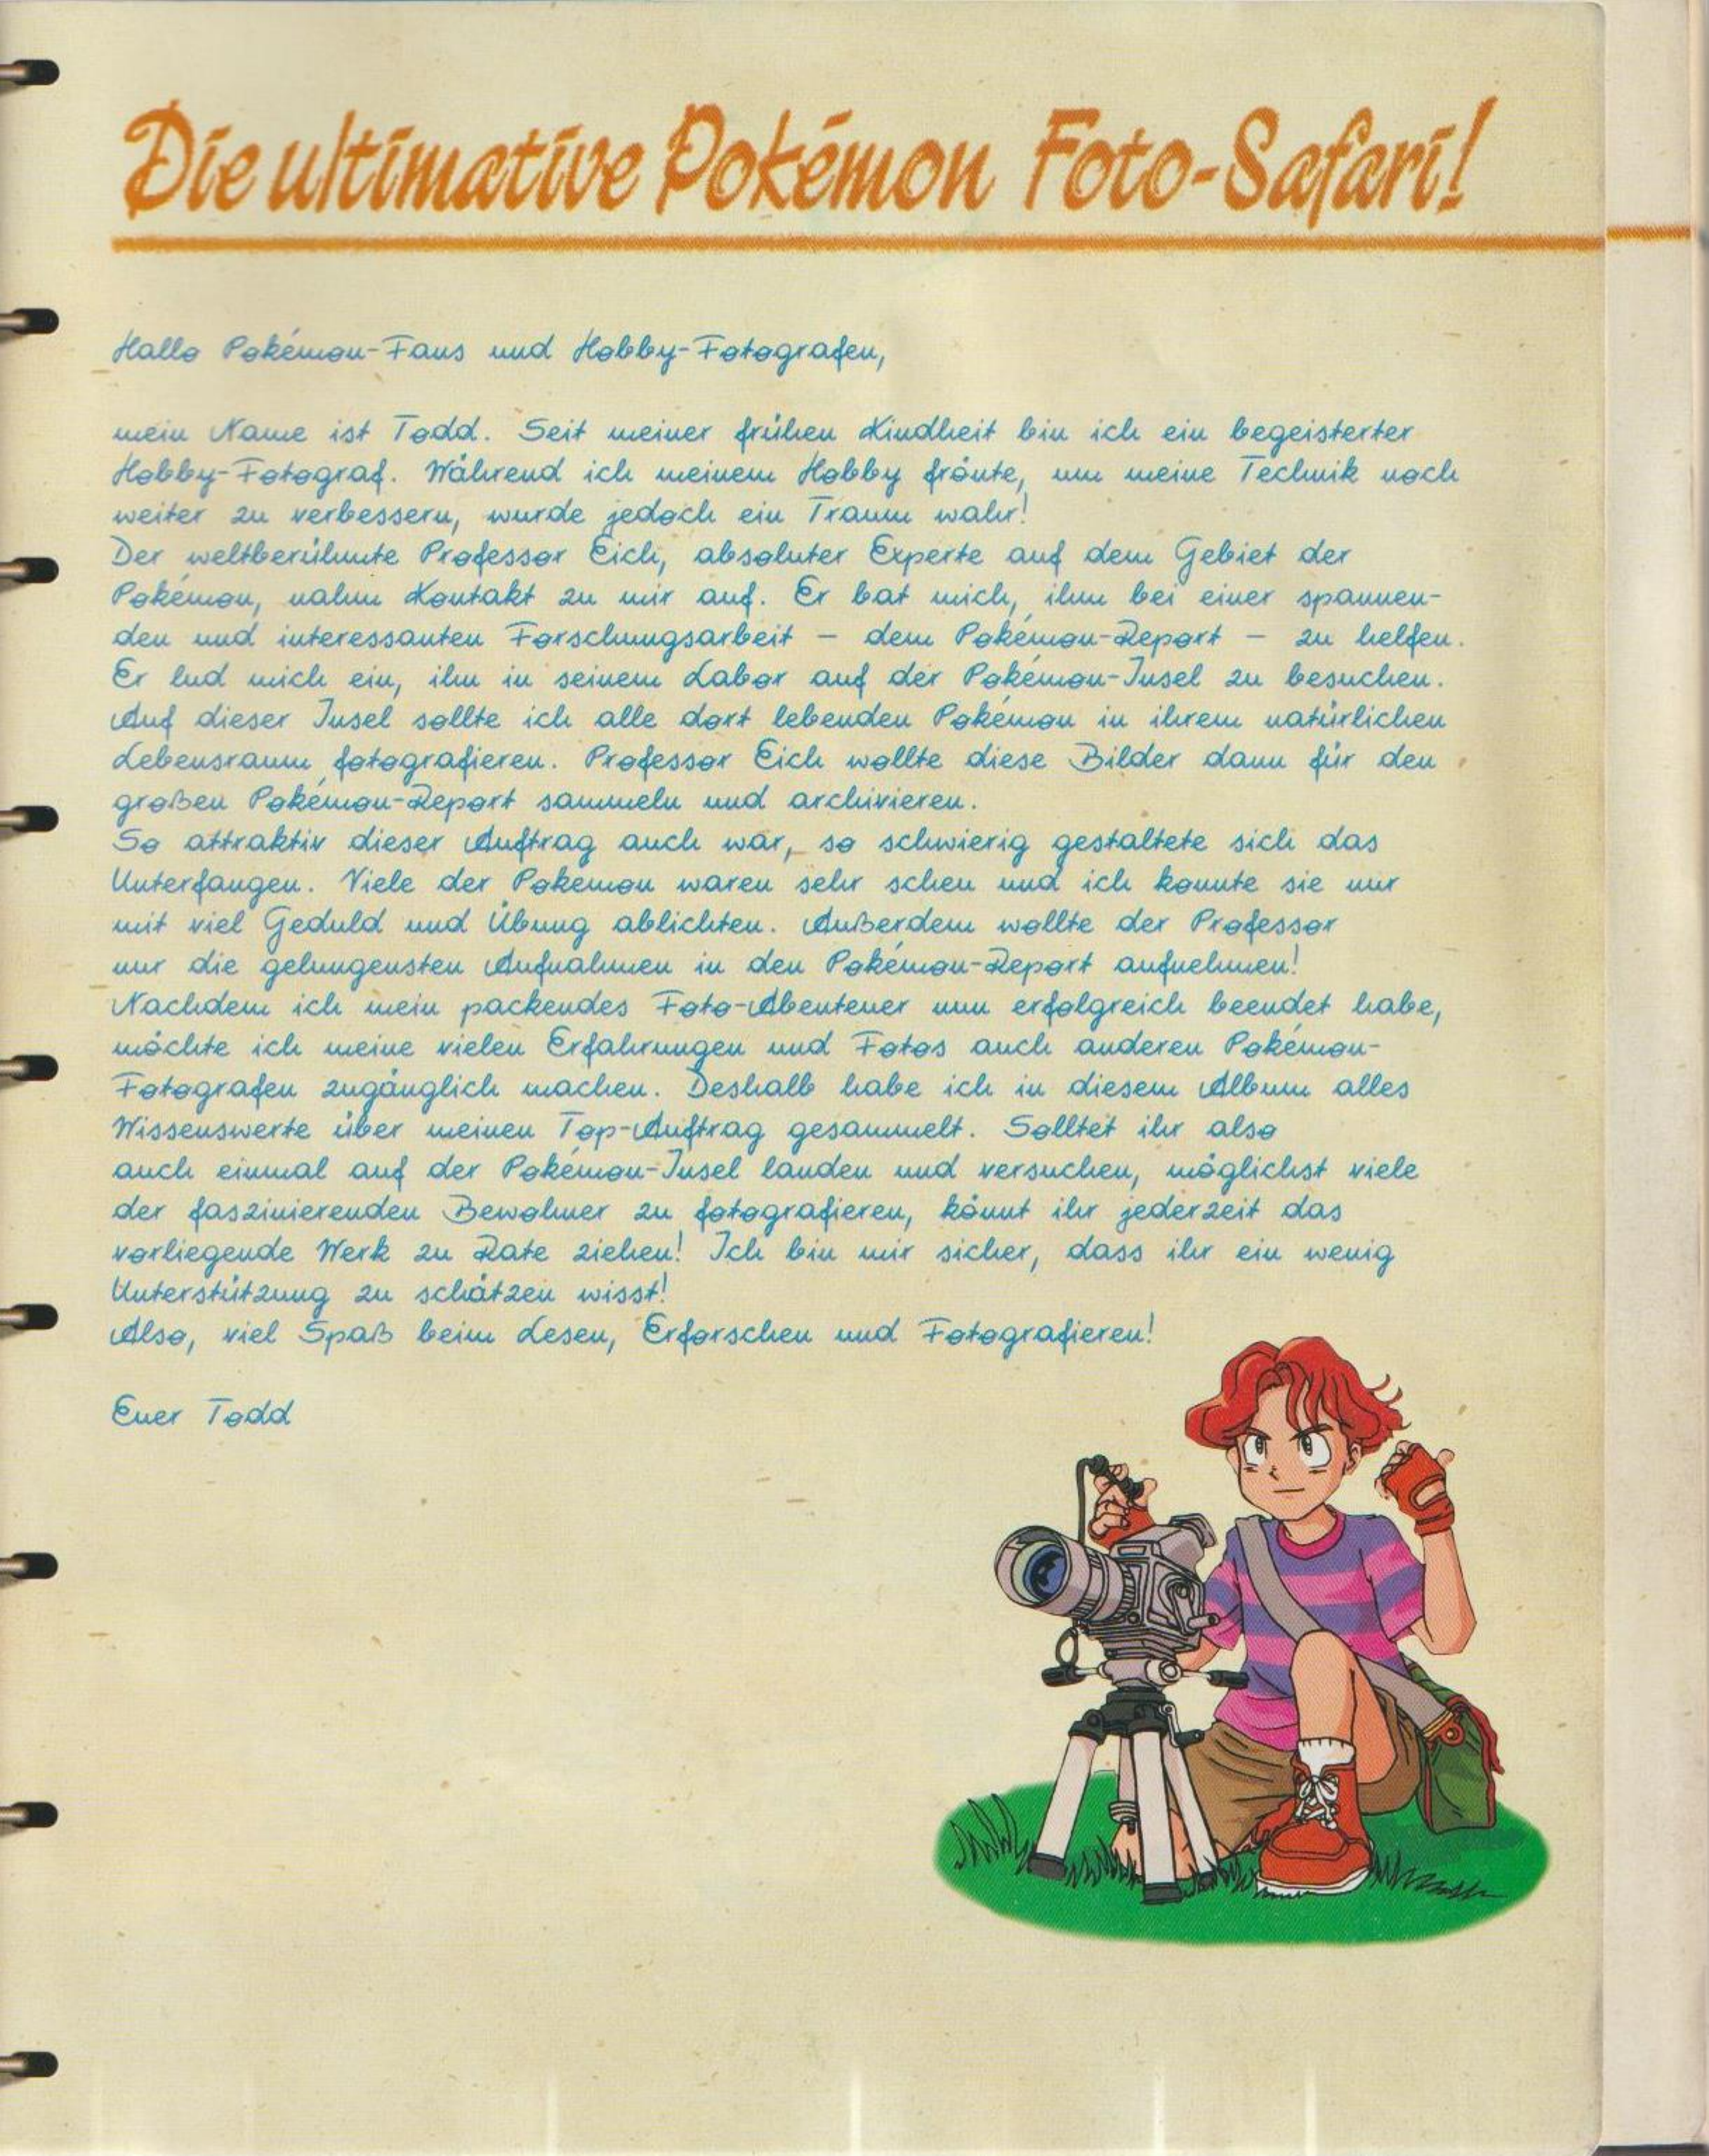 Die ultimative Pokémon Foto-Safari!
Hallo Pokémon-Fans und Hobby-Fotografen,
mein Name ist Todd. Seit meiner frühen Kindheit bin ich ein begeisterter
Hobby-Fotograf. Während ich meinem Hobby frönte, um meine Technik noch
weiter zu verbessern, wurde jedoch ein Traum wahr!
Der weltberühmte Professor Eich, absoluter Experte auf dem Gebiet der
Pokémon, nahm Kontakt zu mir auf. Er bat mich, ihm bei einer spannen-
den und interessanten Forschungsarbeit – dem Pokémon-Report – zu helfen.
Er lud mich ein, ihn in seinem Labor auf der Pokémon-Insel zu besuchen.
Auf dieser Insel sollte ich alle dort lebenden Pokémon in ihrem natürlichen
Lebensraum fotografieren. Professor Eich wollte diese Bilder dann für den
großen Pokémon-Report sammeln und archivieren.
So attraktiv dieser Auftrag auch war, so schwierig gestaltete sich das
Unterfangen. Viele der Pokémon waren sehr scheu und ich konnte sie nur
mit viel Geduld und Übung ablichten. Außerdem wollte der Professor
nur die gelungensten Aufnahmen in den Pokémon-Report aufnehmen!
Nachdem ich mein packendes Foto-Abenteuer nun erfolgreich beendet habe,
möchte ich meine vielen Erfahrungen und Fotos auch anderen Pokémon-
Fotografen zugänglich machen. Deshalb habe ich in diesem Album alles
Wissenswerte über meinen Top-Auftrag gesammelt. Solltet ihr also
auch einmal auf der Pokémon-Insel landen und versuchen, möglichst viele
der faszinierenden Bewohner zu fotografieren, könnt ihr jederzeit das
vorliegende Werk zu Rate ziehen! Ich bin mir sicher, dass ihr ein wenig
Unterstützung zu schätzen wisst!
Also, viel Spaß beim Lesen, Erforschen und Fotografieren!
Euer Todd